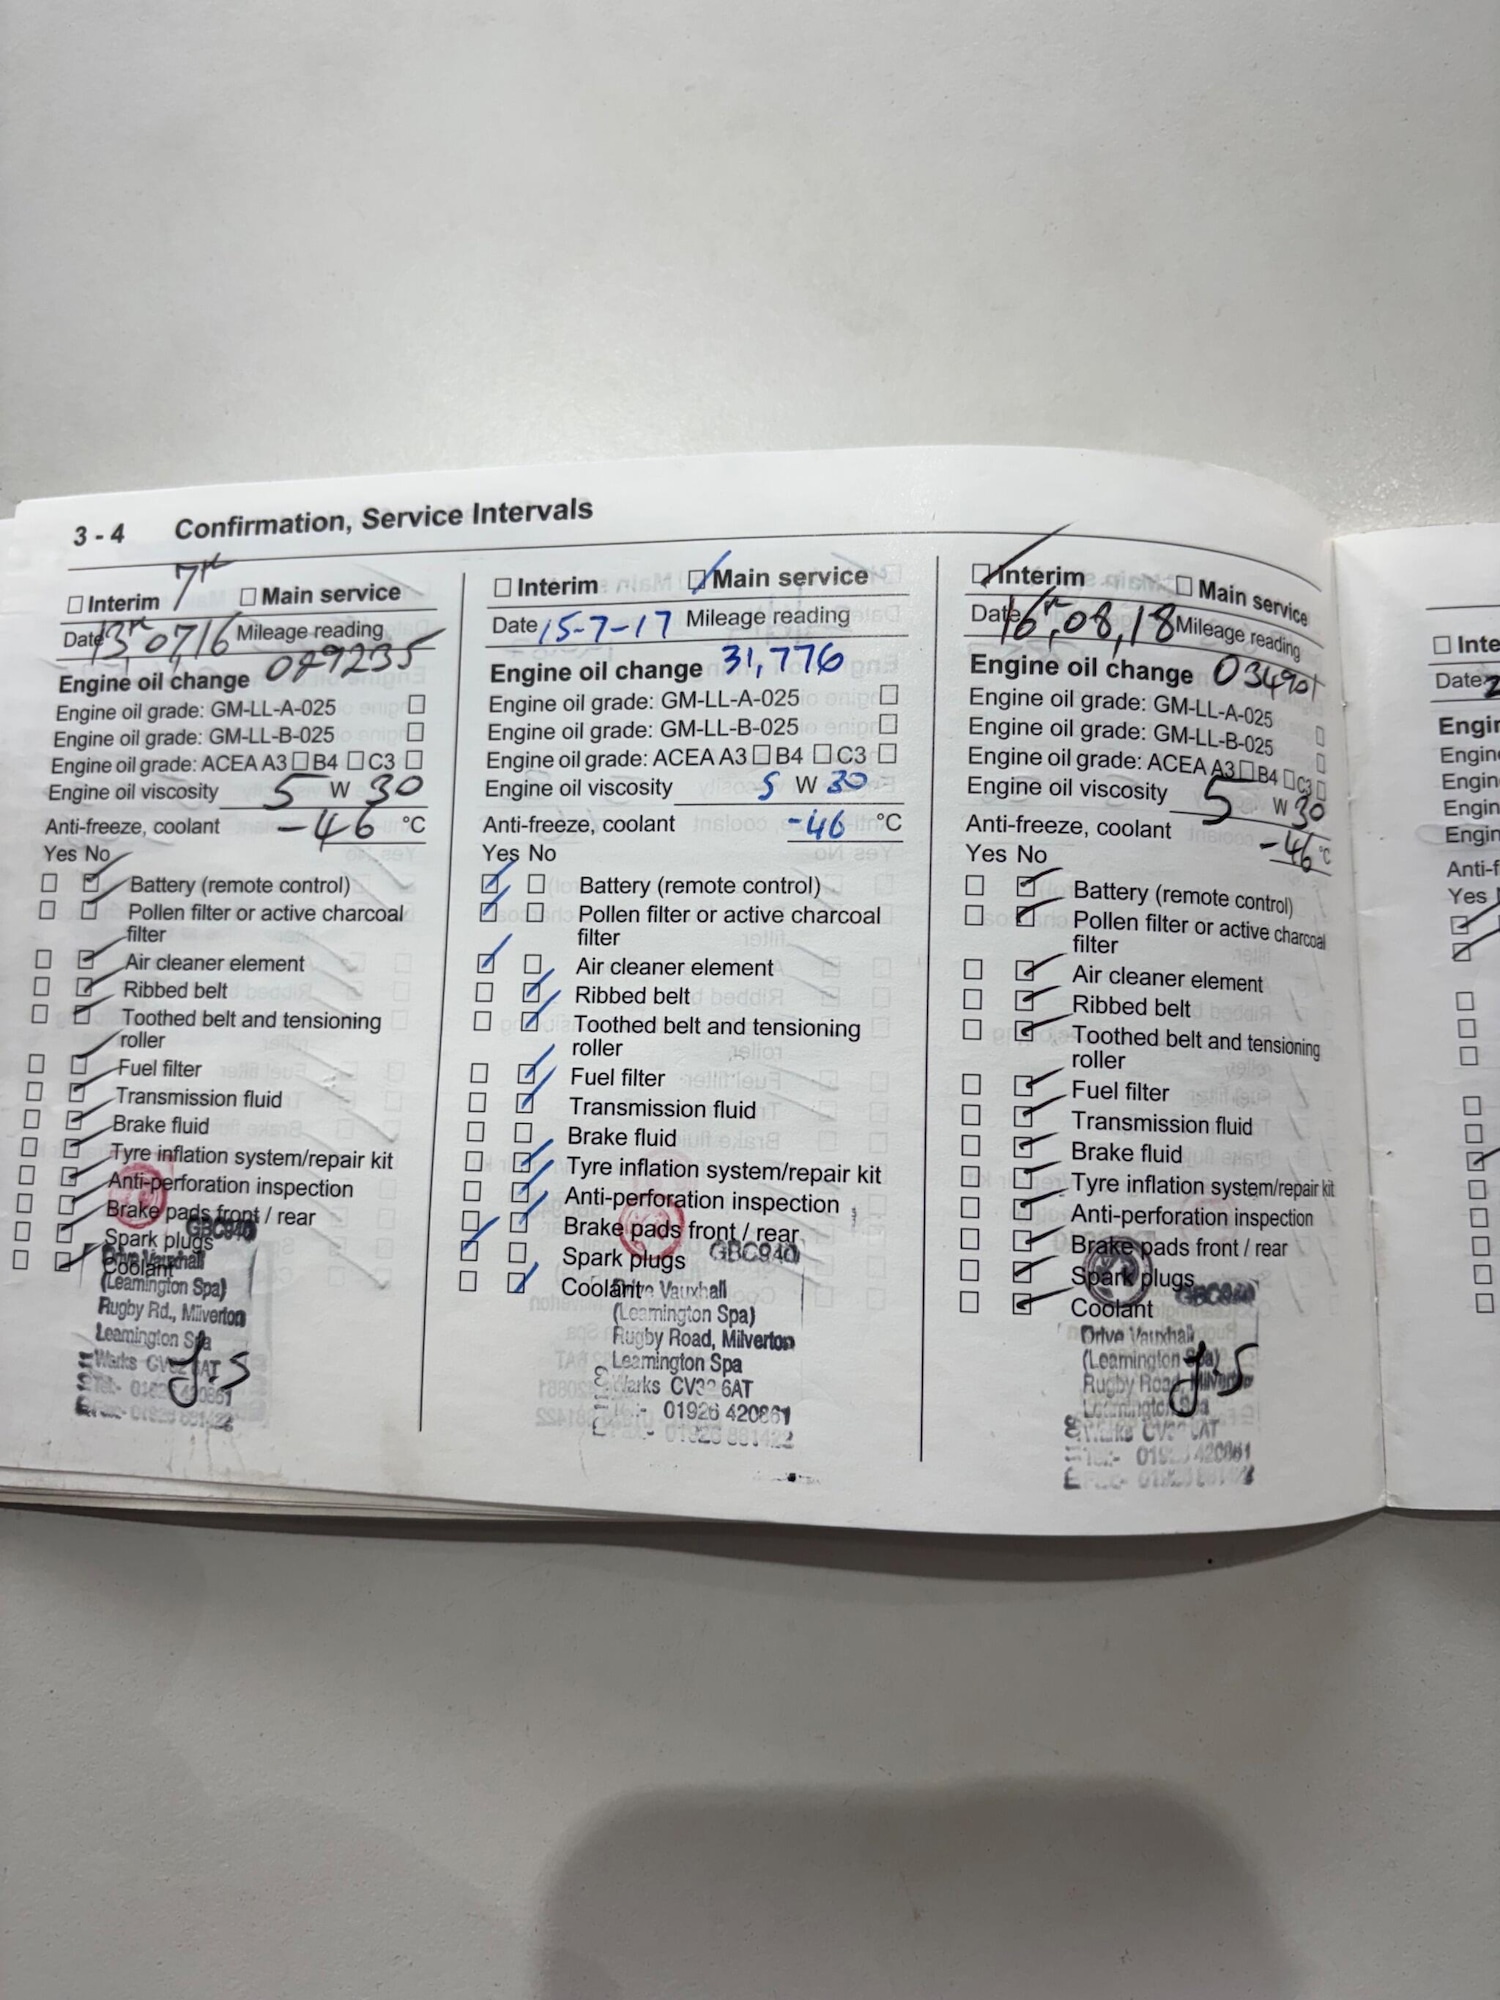 3 - 4 Confirmation, Service Intervals
Interim Main service
Date 13, 07, 16 Mileage reading
Engine oil change 029235
Engine oil grade: GM-LL-A-025
Engine oil grade: GM-LL-B-025
Engine oil grade: ACEA A3 B4 C3
Engine oil viscosity 5 W 30
Anti-freeze, coolant -46 °C
Yes No
Battery (remote control)
Pollen filter or active charcoal
filter
Air cleaner element
Ribbed belt
Toothed belt and tensioning
roller
Fuel filter
Transmission fluid
Brake fluid
Tyre inflation system/repair kit
Anti-perforation inspection
Brake pads front / rear
Spark plugs
Coolant
GBC940
Drive Vauxhall
(Leamington Spa)
Rugby Rd., Milverton
Leamington Spa
Warks CV32 6AT
Tel:- 01926 420861
01926 881422
J.S
Interim Main service
Date 15-7-17 Mileage reading
Engine oil change 31,776
Engine oil grade: GM-LL-A-025
Engine oil grade: GM-LL-B-025
Engine oil grade: ACEA A3 B4 C3
Engine oil viscosity 5 W 30
Anti-freeze, coolant -46 °C
Yes No
Battery (remote control)
Pollen filter or active charcoal
filter
Air cleaner element
Ribbed belt
Toothed belt and tensioning
roller
Fuel filter
Transmission fluid
Brake fluid
Tyre inflation system/repair kit
Anti-perforation inspection
Brake pads front / rear
Spark plugs
Coolant
GBC940
Drive Vauxhall
(Leamington Spa)
Rugby Road, Milverton
Leamington Spa
Warks CV32 6AT
01926 420861
01926 881422
Interim Main service
Date 16, 08, 18 Mileage reading
Engine oil change 034901
Engine oil grade: GM-LL-A-025
Engine oil grade: GM-LL-B-025
Engine oil grade: ACEA A3 B4 C3
Engine oil viscosity 5 W 30
Anti-freeze, coolant -46 °C
Yes No
Battery (remote control)
Pollen filter or active charcoal
filter
Air cleaner element
Ribbed belt
Toothed belt and tensioning
roller
Fuel filter
Transmission fluid
Brake fluid
Tyre inflation system/repair kit
Anti-perforation inspection
Brake pads front / rear
Spark plugs
Coolant
GBC940
Drive Vauxhall
(Leamington Spa)
Rugby Road, Milverton
Leamington Spa
Warks CV32 6AT
01926 420861
J.S
Inte
Date 2
Engin
Engine
Engin
Engin
Engin
Anti-f
Yes